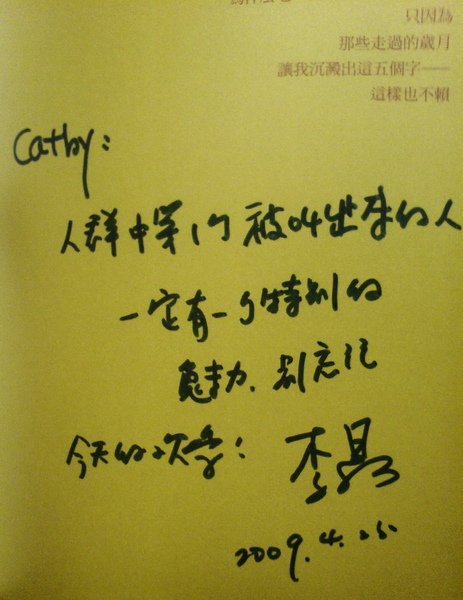 只因為
那些走過的歲月
讓我沉澱出這五個字——
這樣也不賴
Cathy:
人群中第1个被叫出來的人
一定有一个特别的
魅力、别忘记
今天的
2009.4.25.